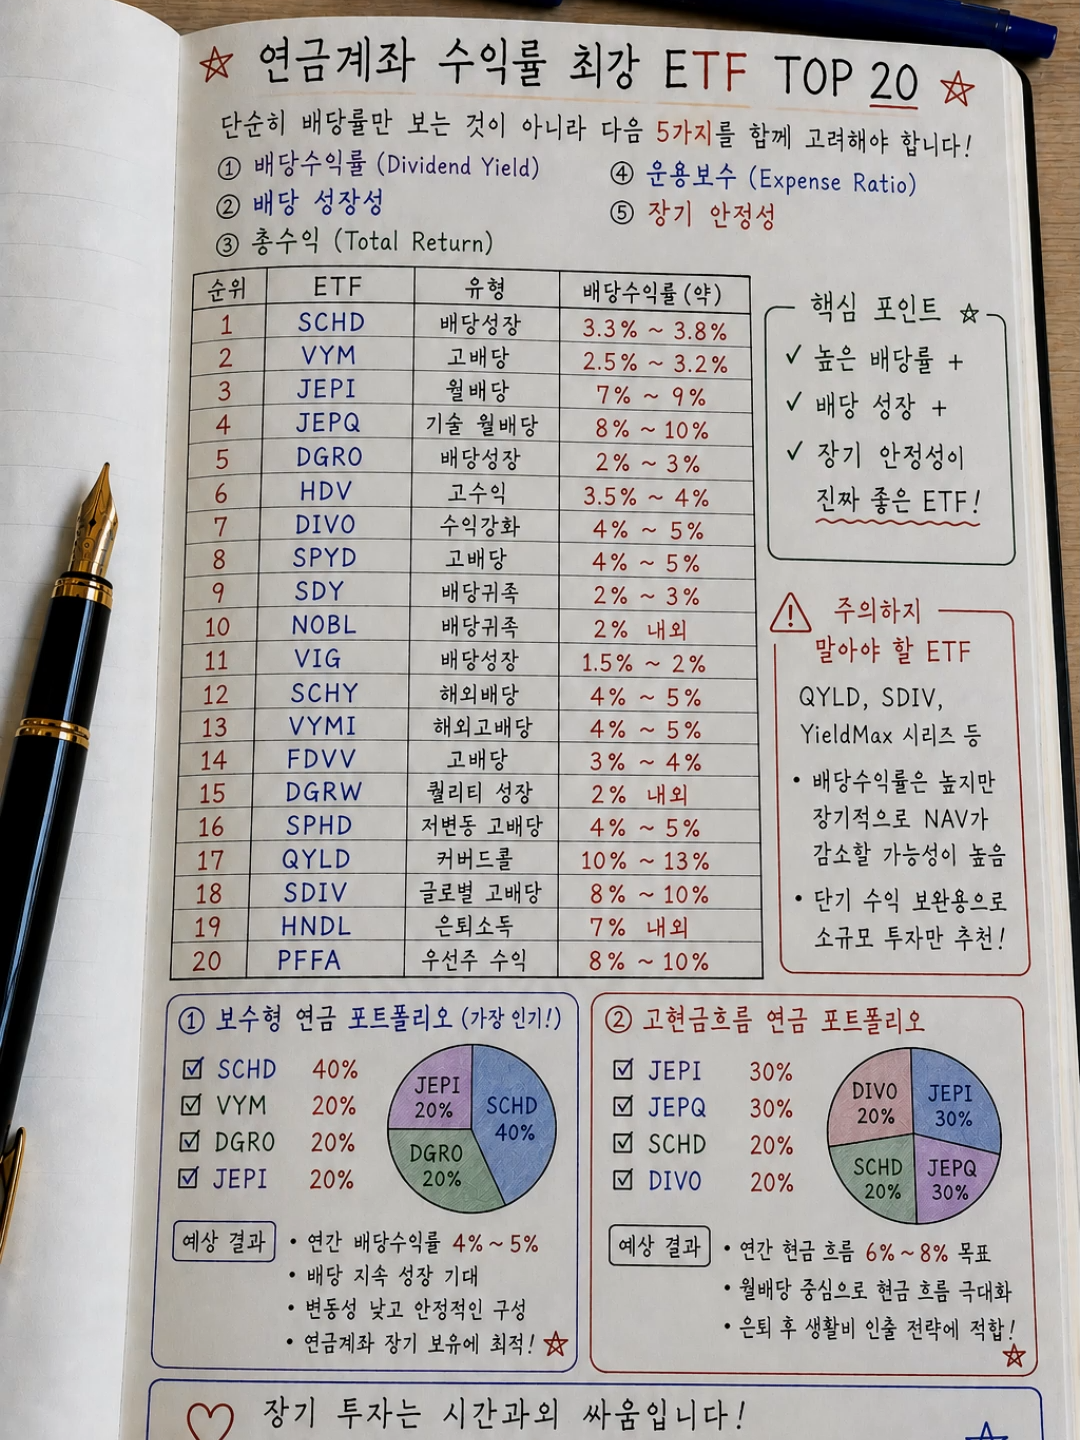 ☆ 연금계좌 수익률 최강 ETF TOP 20 ☆
단순히 배당률만 보는 것이 아니라 다음 5가지를 함께 고려해야 합니다!
① 배당수익률 (Dividend Yield)
② 배당 성장성
③ 총수익 (Total Return)
④ 운용보수 (Expense Ratio)
⑤ 장기 안정성
순위 ETF 유형 배당수익률 (약)
1 SCHD 배당성장 3.3% ~ 3.8%
2 VYM 고배당 2.5% ~ 3.2%
3 JEPI 월배당 7% ~ 9%
4 JEPQ 기술 월배당 8% ~ 10%
5 DGRO 배당성장 2% ~ 3%
6 HDV 고수익 3.5% ~ 4%
7 DIVO 수익강화 4% ~ 5%
8 SPYD 고배당 4% ~ 5%
9 SDY 배당귀족 2% ~ 3%
10 NOBL 배당귀족 2% 내외
11 VIG 배당성장 1.5% ~ 2%
12 SCHY 해외배당 4% ~ 5%
13 VYMI 해외고배당 4% ~ 5%
14 FDVV 고배당 3% ~ 4%
15 DGRW 퀄리티 성장 2% 내외
16 SPHD 저변동 고배당 4% ~ 5%
17 QYLD 커버드콜 10% ~ 13%
18 SDIV 글로벌 고배당 8% ~ 10%
19 HNDL 은퇴소득 7% 내외
20 PFFA 우선주 수익 8% ~ 10%
핵심 포인트 ☆
✓ 높은 배당률 +
✓ 배당 성장 +
✓ 장기 안정성이
진짜 좋은 ETF!
⚠ 주의하지
말아야 할 ETF
QYLD, SDIV,
YieldMax 시리즈 등
• 배당수익률은 높지만
장기적으로 NAV가
감소할 가능성이 높음
• 단기 수익 보완용으로
소규모 투자만 추천!
① 보수형 연금 포트폴리오 (가장 인기!)
☑ SCHD 40%
☑ VYM 20%
☑ DGRO 20%
☑ JEPI 20%
JEPI
20%
SCHD
40%
DGRO
20%
예상 결과
• 연간 배당수익률 4% ~ 5%
• 배당 지속 성장 기대
• 변동성 낮고 안정적인 구성
• 연금계좌 장기 보유에 최적! ☆
② 고현금흐름 연금 포트폴리오
☑ JEPI 30%
☑ JEPQ 30%
☑ SCHD 20%
☑ DIVO 20%
DIVO
20%
JEPI
30%
SCHD
20%
JEPQ
30%
예상 결과
• 연간 현금 흐름 6% ~ 8% 목표
• 월배당 중심으로 현금 흐름 극대화
• 은퇴 후 생활비 인출 전략에 적합!
☆
♡ 장기 투자는 시간과외 싸움입니다!